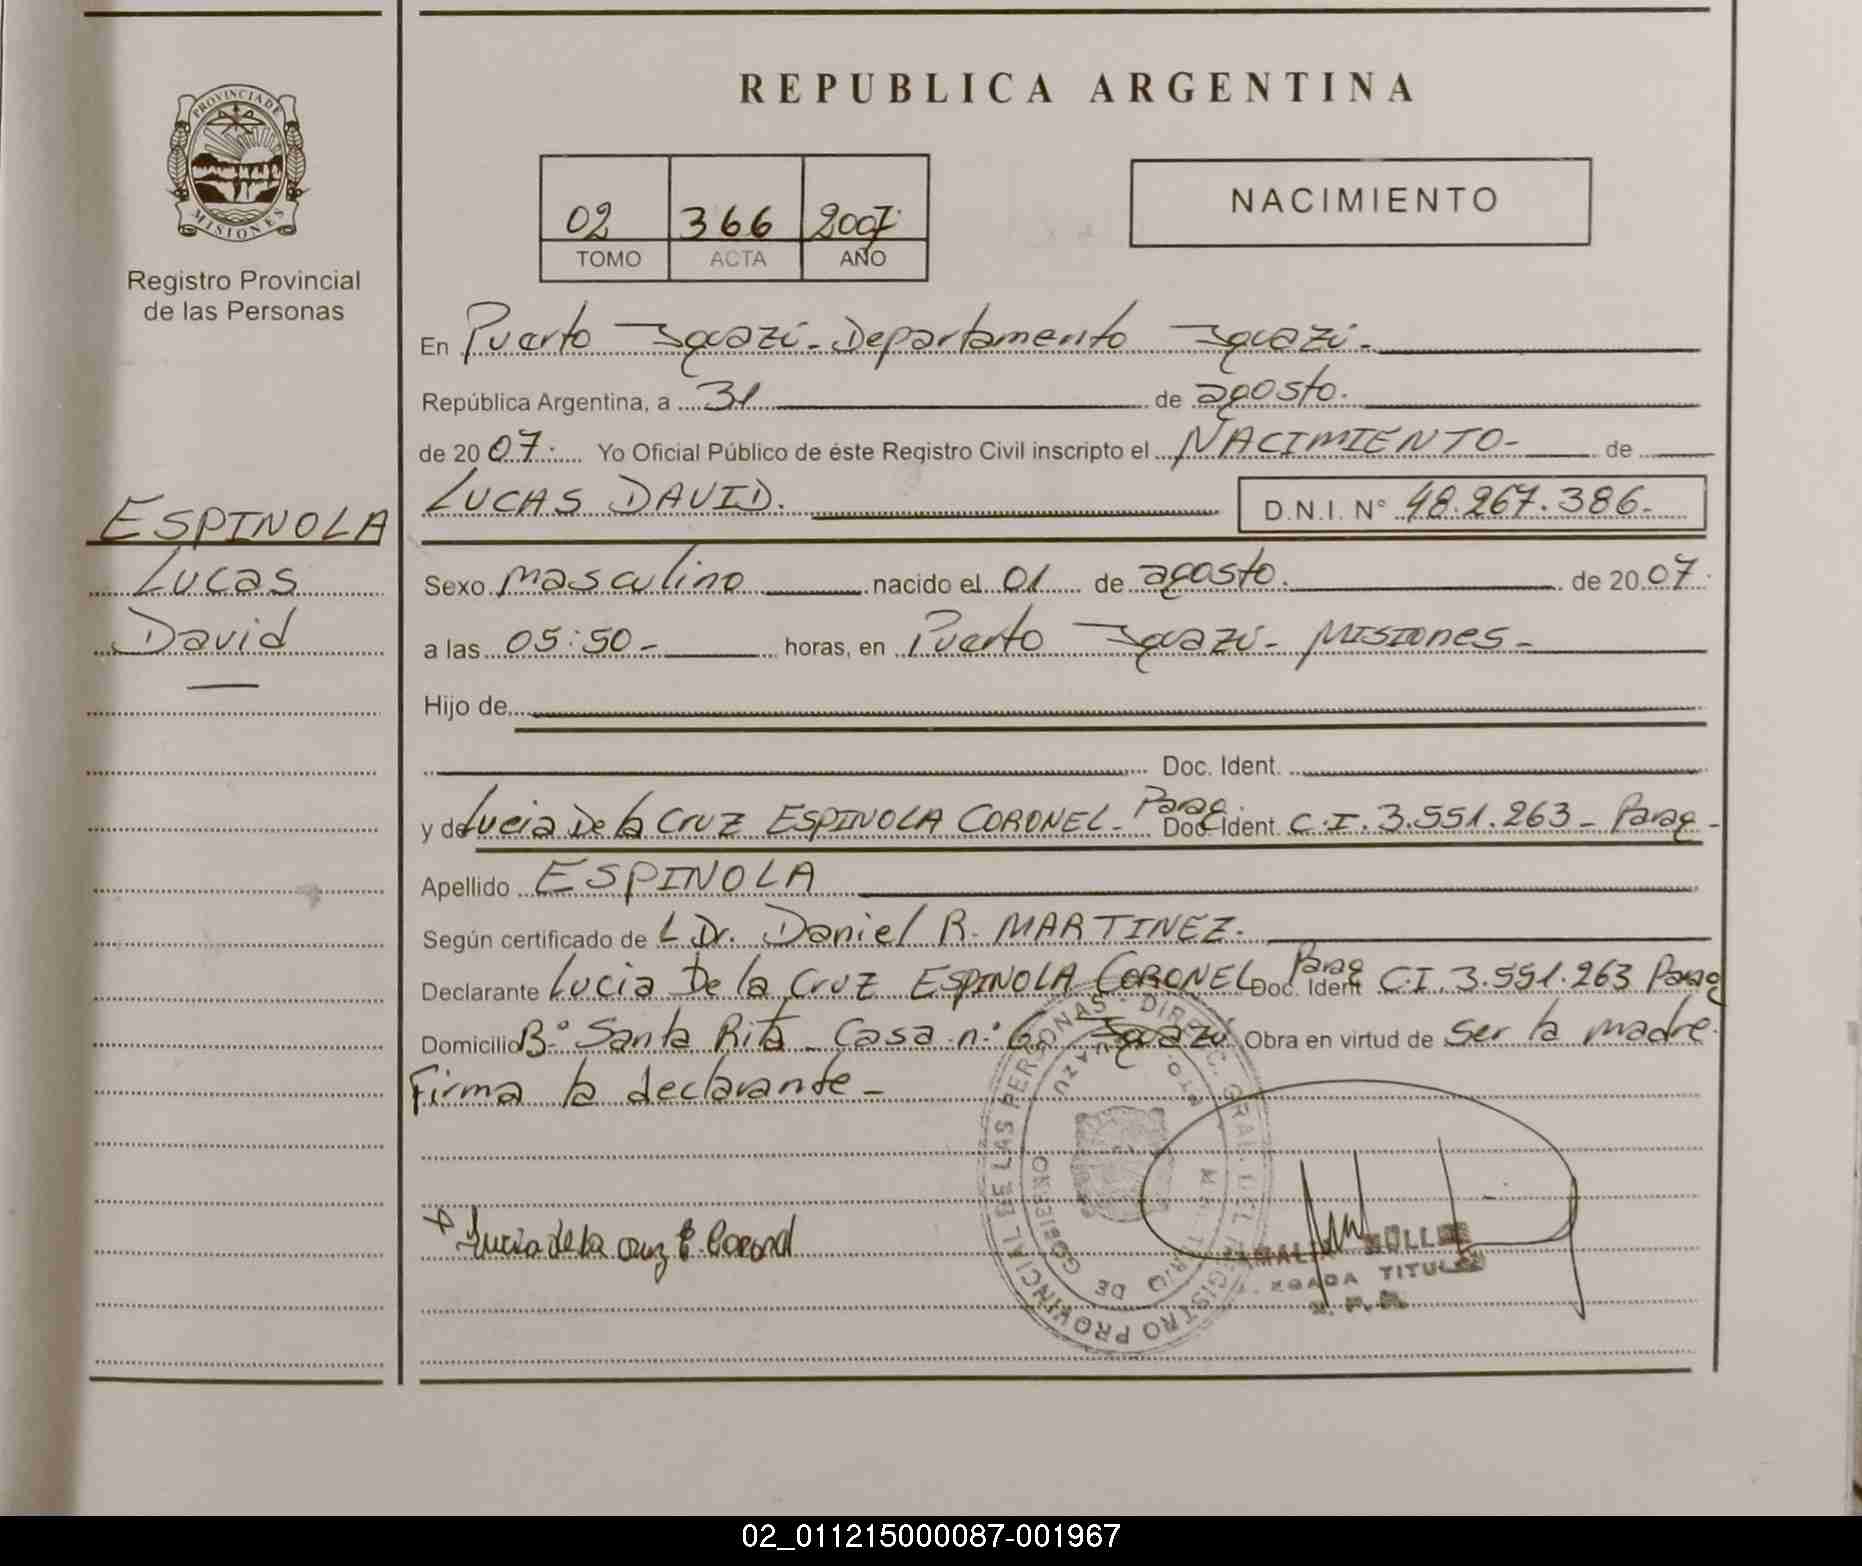 REPUBLICA ARGENTINA
PROVINCIA DE
MISIONES
Registro Provincial
de las Personas
02 366 2007
TOMO ACTA AÑO
NACIMIENTO
En Puerto Iguazú - Departamento Iguazú -
República Argentina, a 31 de agosto.
de 2007. Yo Oficial Público de éste Registro Civil inscripto el NACIMIENTO - de
LUCAS DAVID. D.N.I. N° 48.267.386-
ESPINOLA
Lucas
David
Sexo masculino nacido el 01 de agosto. de 2007.
a las 05:50 - horas, en Puerto Iguazú - Misiones -
Hijo de
Doc. Ident.
y de Lucia De la Cruz ESPINOLA CORONEL - Parag. Doc. Ident. C.I. 3.551.263 - Parag -
Apellido ESPINOLA
Según certificado de L Dr. Daniel R. MARTINEZ.
Declarante Lucia De la Cruz ESPINOLA CORONEL Parag Doc. Ident C.I. 3.551.263 Parag
Domicilio B° Santa Rita - Casa n° Iguazú Obra en virtud de ser la madre.
Firma la declarante -
Lucia de la Cruz E. Coronel
DIRECC. GRAL. DEL REGISTRO PROVINCIAL DE LAS PERSONAS
MINISTERIO DE GOBIERNO
TITULAR
02_011215000087-001967